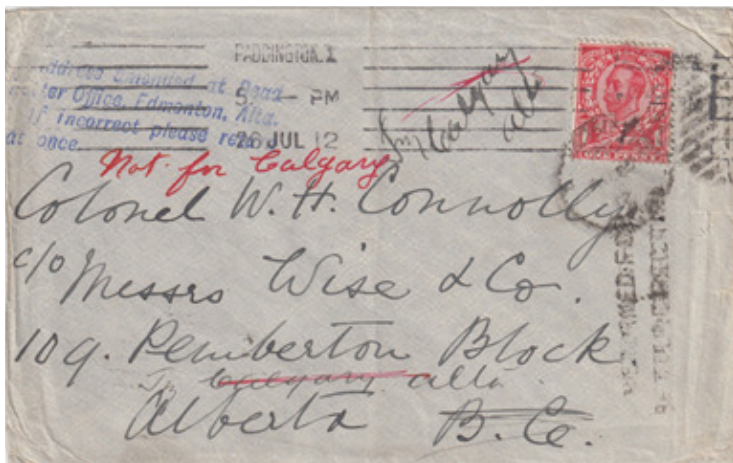 PADDINGTON. 1
5 — PM
26 JUL 12
Address amended at Dead
Letter Office, Edmonton, Alta.
If incorrect please
at once.
Try Calgary
alta
Not for Calgary
Colonel W. H. Connolly
c/o Messrs Wise & Co.
109. Pemberton Block
Try Calgary alta
Alberta B.C.